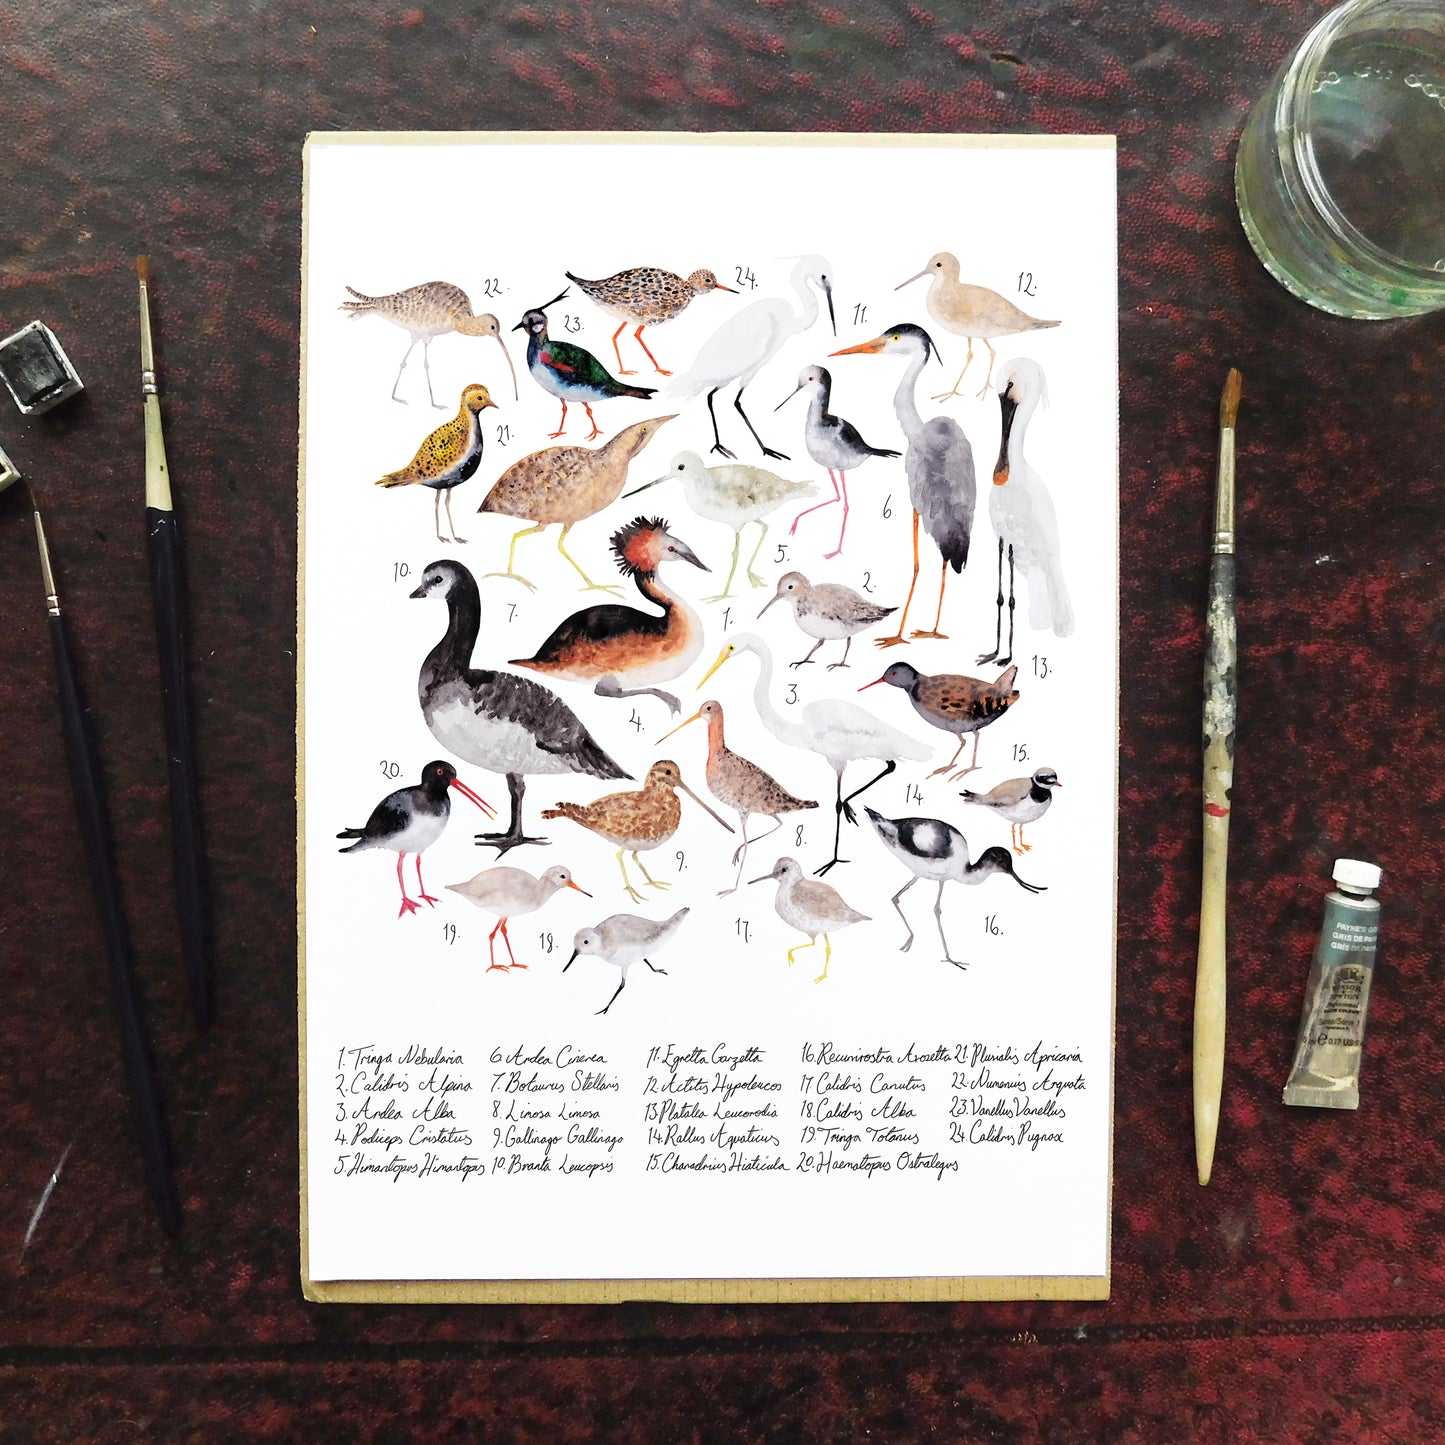 22.
24.
12.
23.
11.
21.
6.
5.
10.
2.
7.
1.
13.
3.
4.
15.
20.
14
8.
9.
17.
16.
19.
18.
1. Tringa Nebularia
2. Calidris Alpina
3. Ardea Alba
4. Podiceps Cristatus
5. Himantopus Himantopus
6. Ardea Cinerea
7. Botaurus Stellaris
8. Limosa Limosa
9. Gallinago Gallinago
10. Branta Leucopsis
11. Egretta Garzetta
12. Actitis Hypoleucos
13. Platalea Leucorodia
14. Rallus Aquaticus
15. Charadrius Hiaticula
16. Recurvirostra Avosetta
17. Calidris Canutus
18. Calidris Alba
19. Tringa Totanus
20. Haematopus Ostralegus
21. Pluvialis Apricaria
22. Numenius Arquata
23. Vanellus Vanellus
24. Calidris Pugnax
PAYNE'S
GRIS DE
GRIS DE
WINSOR
& NEWTON